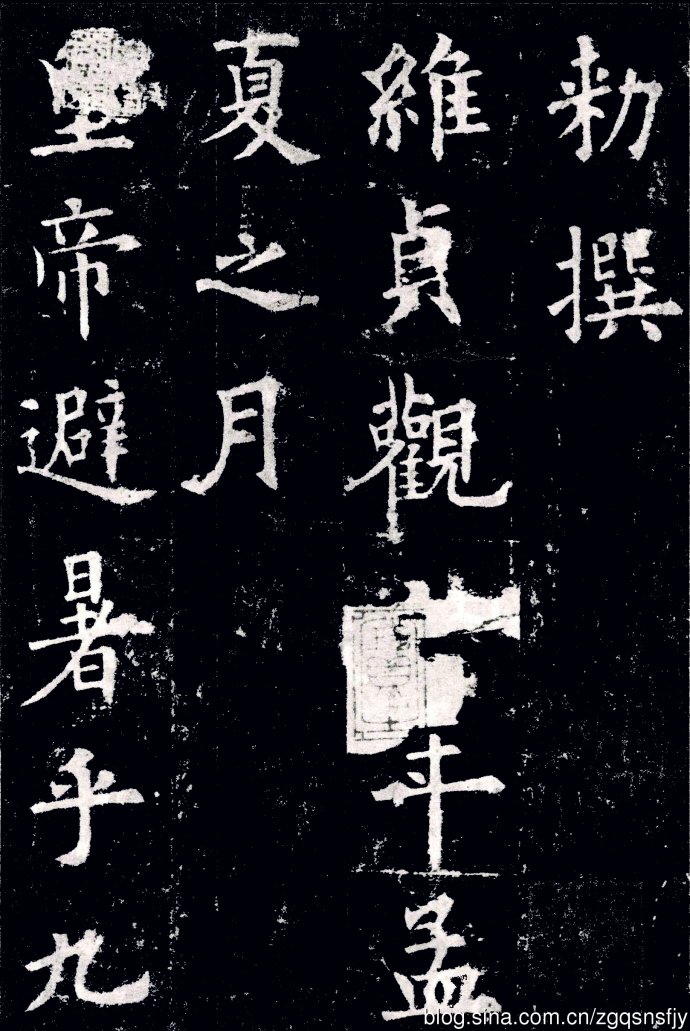 勑撰
維貞觀年孟
夏之月
皇帝避暑乎九
blog.sina.com.cn/zgqsnsfjy